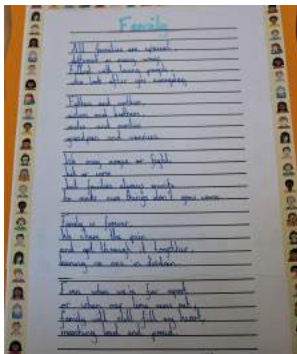 Family
All families are special,
different in many ways,
filled with loving people,
who look after you everyday.
Father and mother,
sisters and brothers,
uncles and aunties
grandpas and nannies
We may argue or fight,
but families always
to make sure things don't grow worse.
Family is forever.
We share the pain
and get through it together,
leaving no one in
Even when we're far apart
or when our time runs out,
family will still fill my heart,
marching loud and proud.